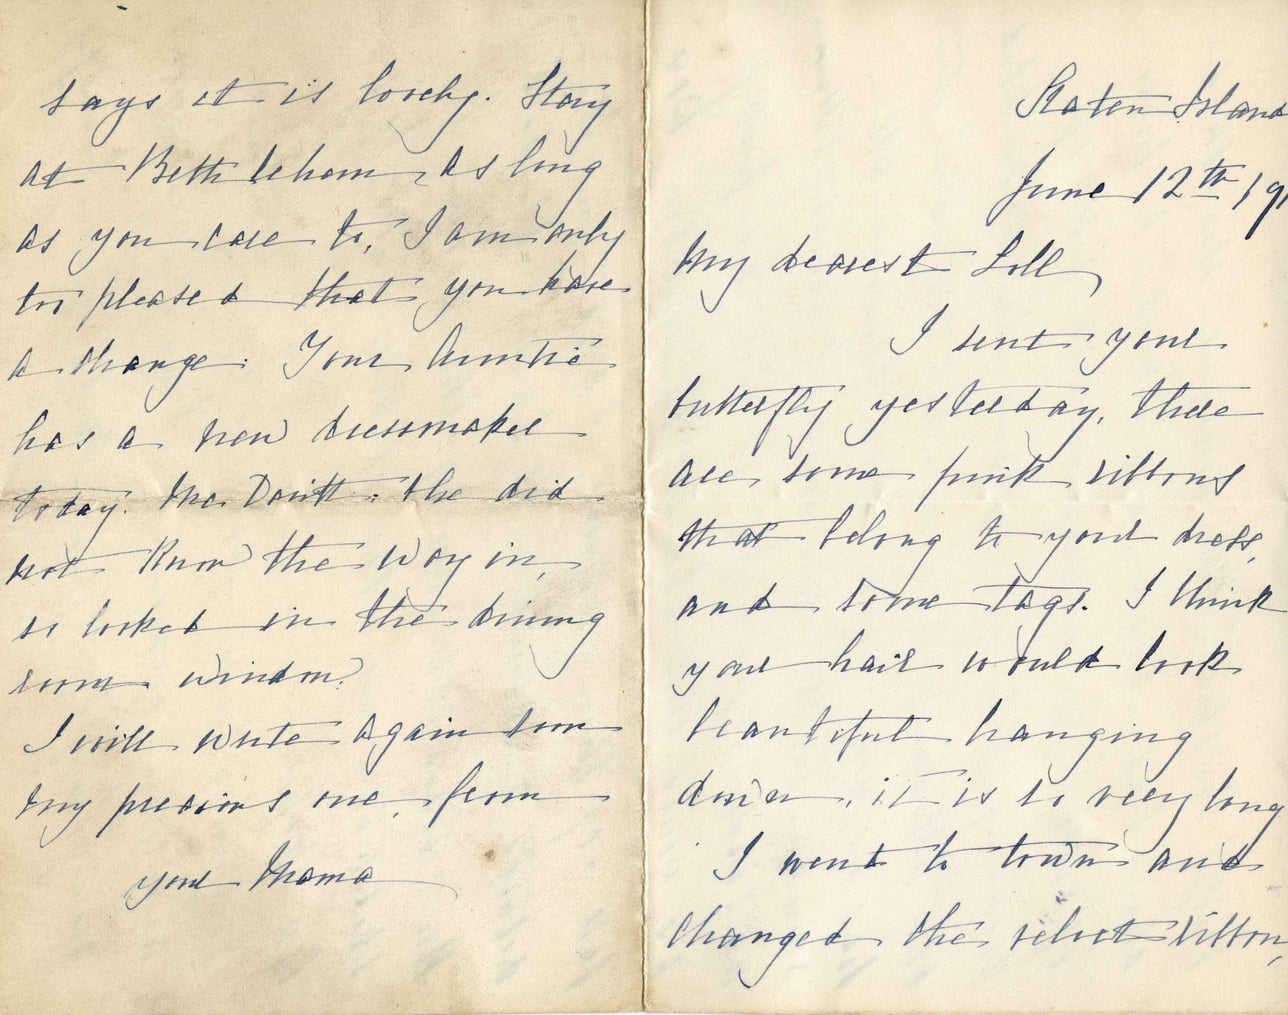 Staten Island
June 12th, 19
My dearest Loll,
I sent your
butterfly yesterday, there
are some pink ribbons
that belong to your dress,
and some tags. I think
your hair would look
beautiful hanging
down, it is so very long
I went to town and
changed the velvet ribbon,
says it is lovely. Stay
at Bethlehem, as long
as you care to, I am only
too pleased that you have
a change. Your Auntie
has a new dressmaker
today. she did
not know the way in,
so looked in the dining
room window.
I will write again soon
my precious one, from
your Mama